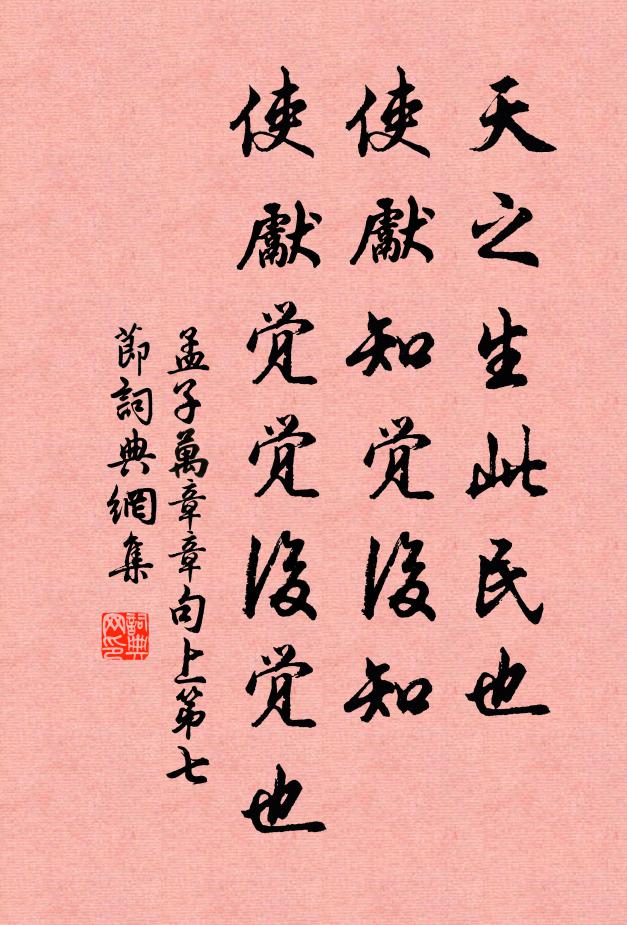 天之生此民也
使獻知觉後知
使獻觉觉後觉也
孟子萬章章句上第七
節詞典網集
詞典
网印